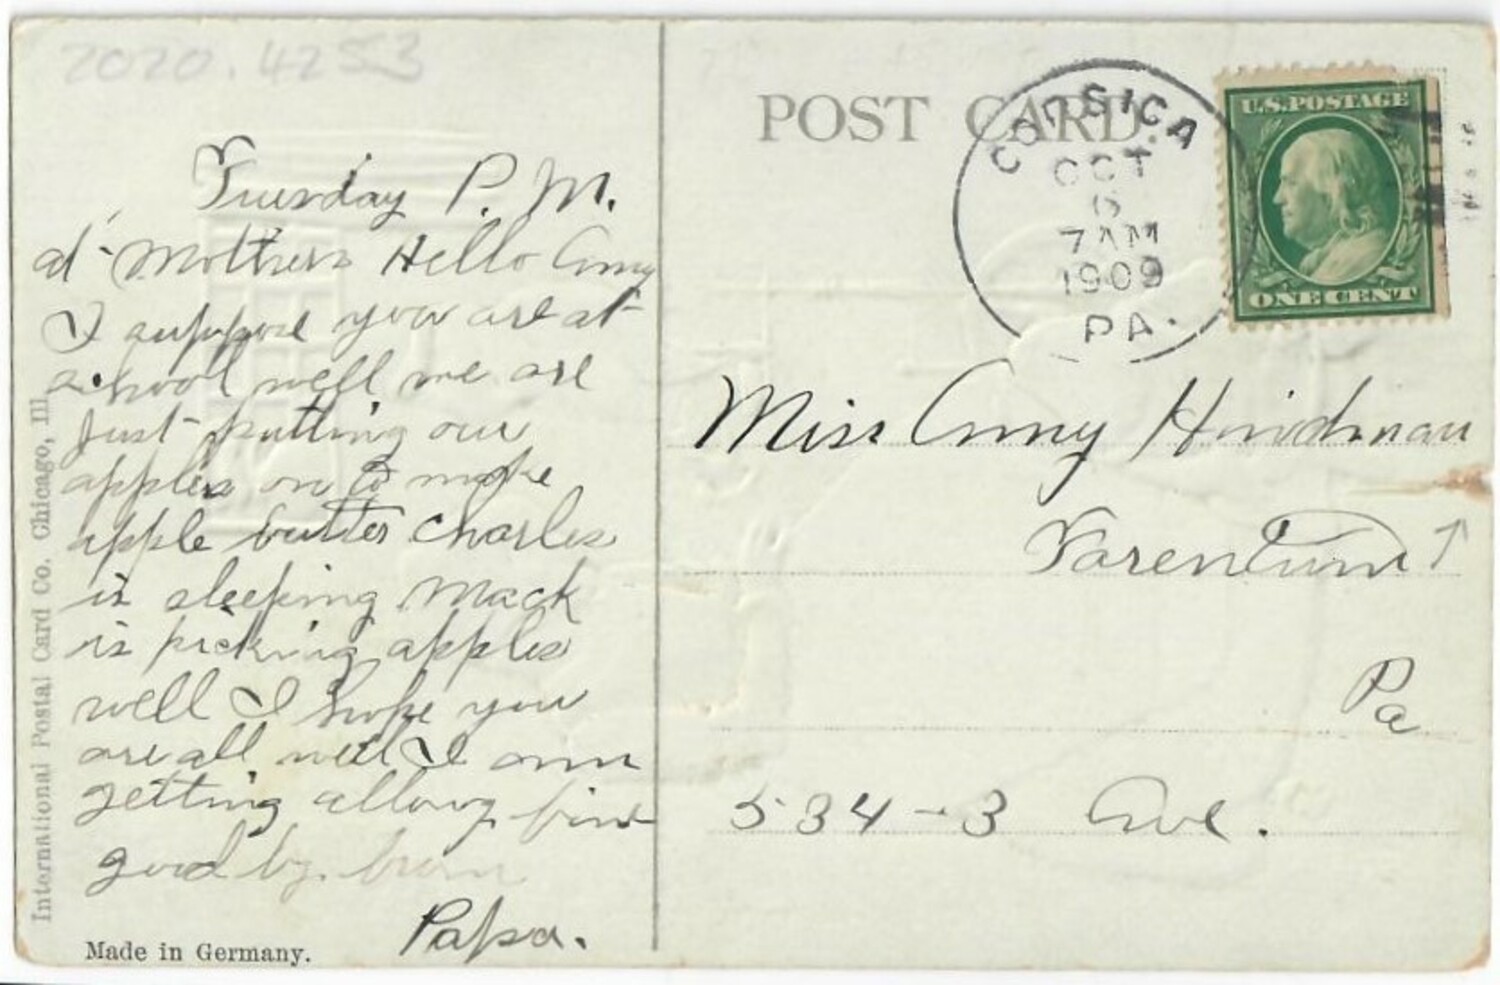 2020.4253
Tuesday P.M.
at Mothers Hello Amy
I suppose you are at
school well we are
just putting our
apples on to make
apple butter Charles
is sleeping Mack
is picking apples
well I hope you
are all well I am
getting allong fine
good by from
Papa.
International Postal Card Co. Chicago, Ill
Made in Germany.
POST CARD.
CORSICA
OCT
6
7AM
1909
PA.
U.S.POSTAGE
ONE CENT
Miss Amy Hindman
Tarentum
Pa
534-3 Ave.